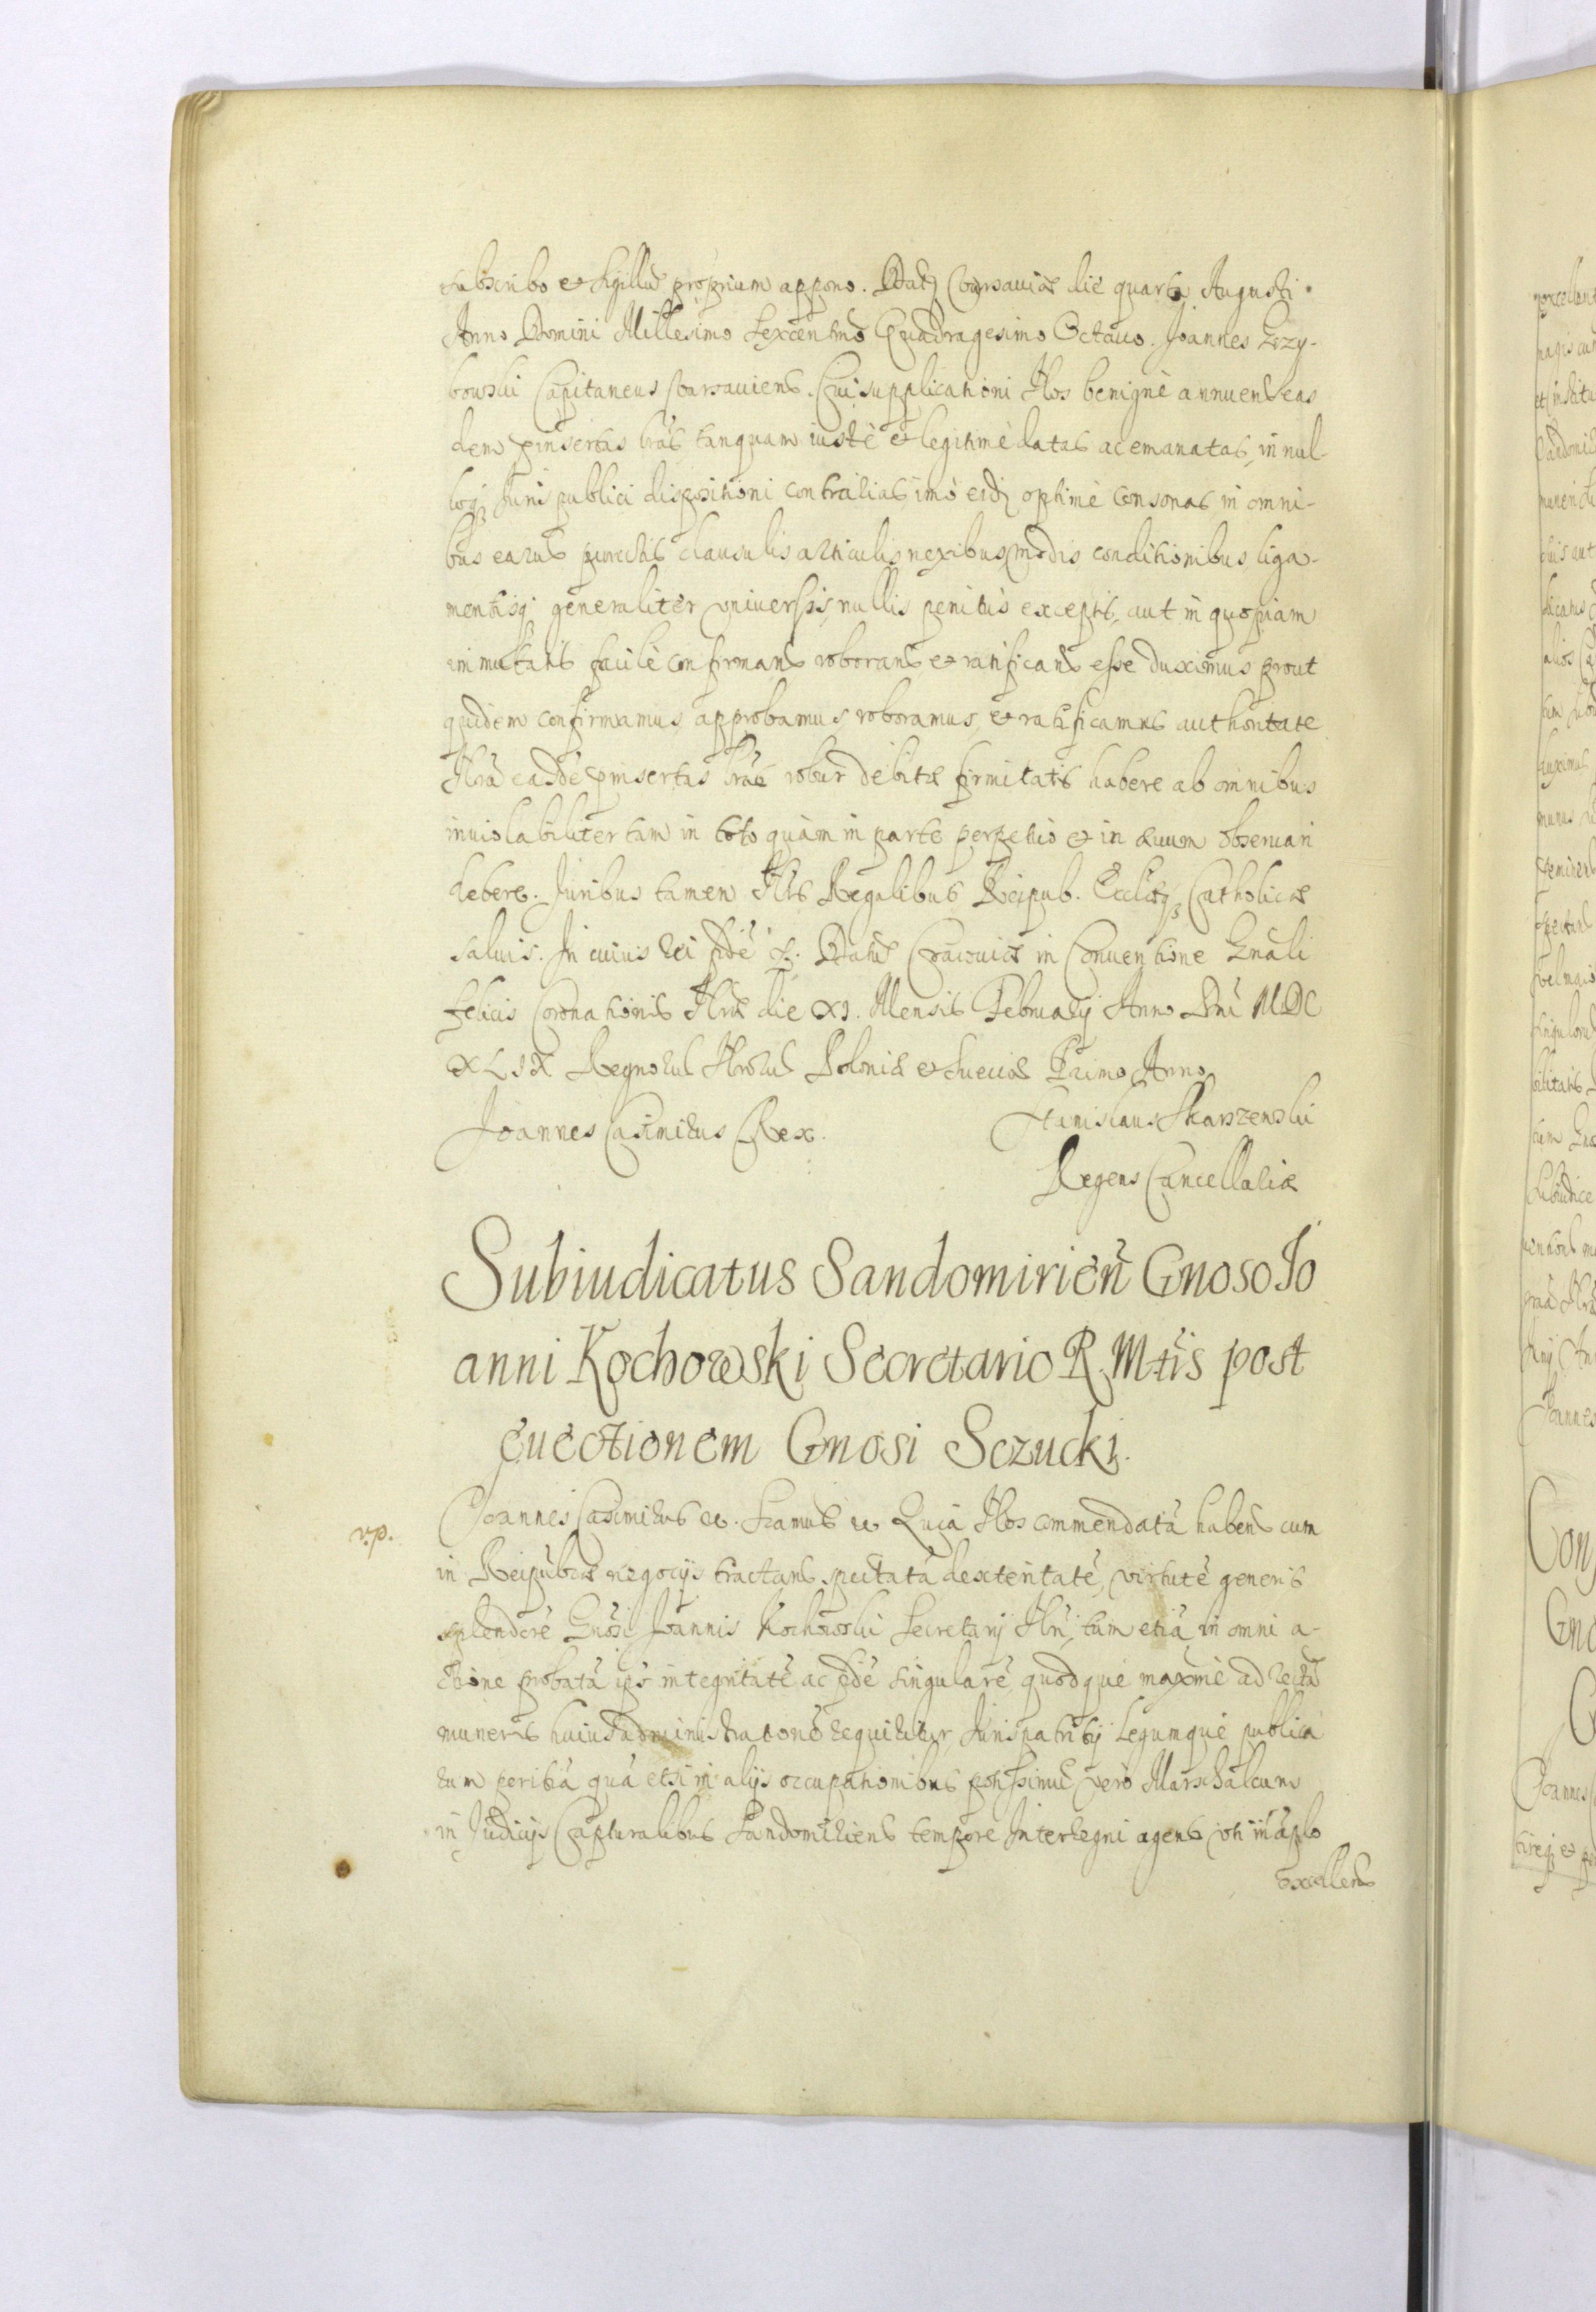 subscribo et sigillũ proprium appono. Datũ Varsauiæ die quarta Augusti.
Anno Domini Millesimo Sexcentmo Quadragesimo Octauo. Joannes Grzy-
bowski Capitaneus Varsauiens. Cui supplicationi Nos benignè annuens eas
dem pinsertas lras tanquam iustè et legitimè datas ac emanatas, in nul-
loq; Juris publici dispositioni contrarias imò eidẽ optimè consonas in omni-
bus earũ punctis clausulis articulis nexibus modis conditionibus liga-
mentisq; generaliter vniuersis, nullis penitus exceptis, aut in quopiam
immutatis facile confirmand roborand et ratificand esse duximus prout
quidem confirmamus, approbamus roboramus, et ratificamus authoritate
Nrã easdẽ pinsertas lras robur debitæ firmitatis habere ab omnibus
inuiolabiliter tam in toto quàm in parte perpetuò et in æuum obseruari
debere. Juribus tamen Nris Regalibus Reipub. Ecclæq; Catholicæ
saluis. In cuius rei fidẽ &. Datũ Cracouiæ in Conuentione Gnali
felicis Coronationis Nræ die XI. Mensis Februarij Anno Dni MDC
XLIX Regnorũ Nrorũ Poloniæ et Sueciæ Primo Anno
Joannes Casimirus Rex. Stanislaus Skarszewski
Regens Cancellariæ
Subiudicatus Sandomirien̄ Gnoso Jo
anni Kochowski Secretario R. Mtis post
euectionem Gnosi Sczucki.
v.p. Joannes Casimirus &. Significamus & Quia Nos commendatã habens cum
in Reipublcæ negocijs tractand spectatã dexteritatẽ, virtutẽ generis
splendorẽ Gnosi Joannis Kochowski Secretarij Nri, tum etiã in omni a-
ctione probatã ips integritatẽ ac fidẽ singularẽ, quodque maximè ad rectã
muneris huius administrationẽ requiritur, Juris patrij Legumque publica
rum peritiã quã etsi in alijs occupationibus potissimũ verò Marschalcum
in Judicijs Capturalibus Sandomiriens tempore Interregni agens vti in aplo
excellens